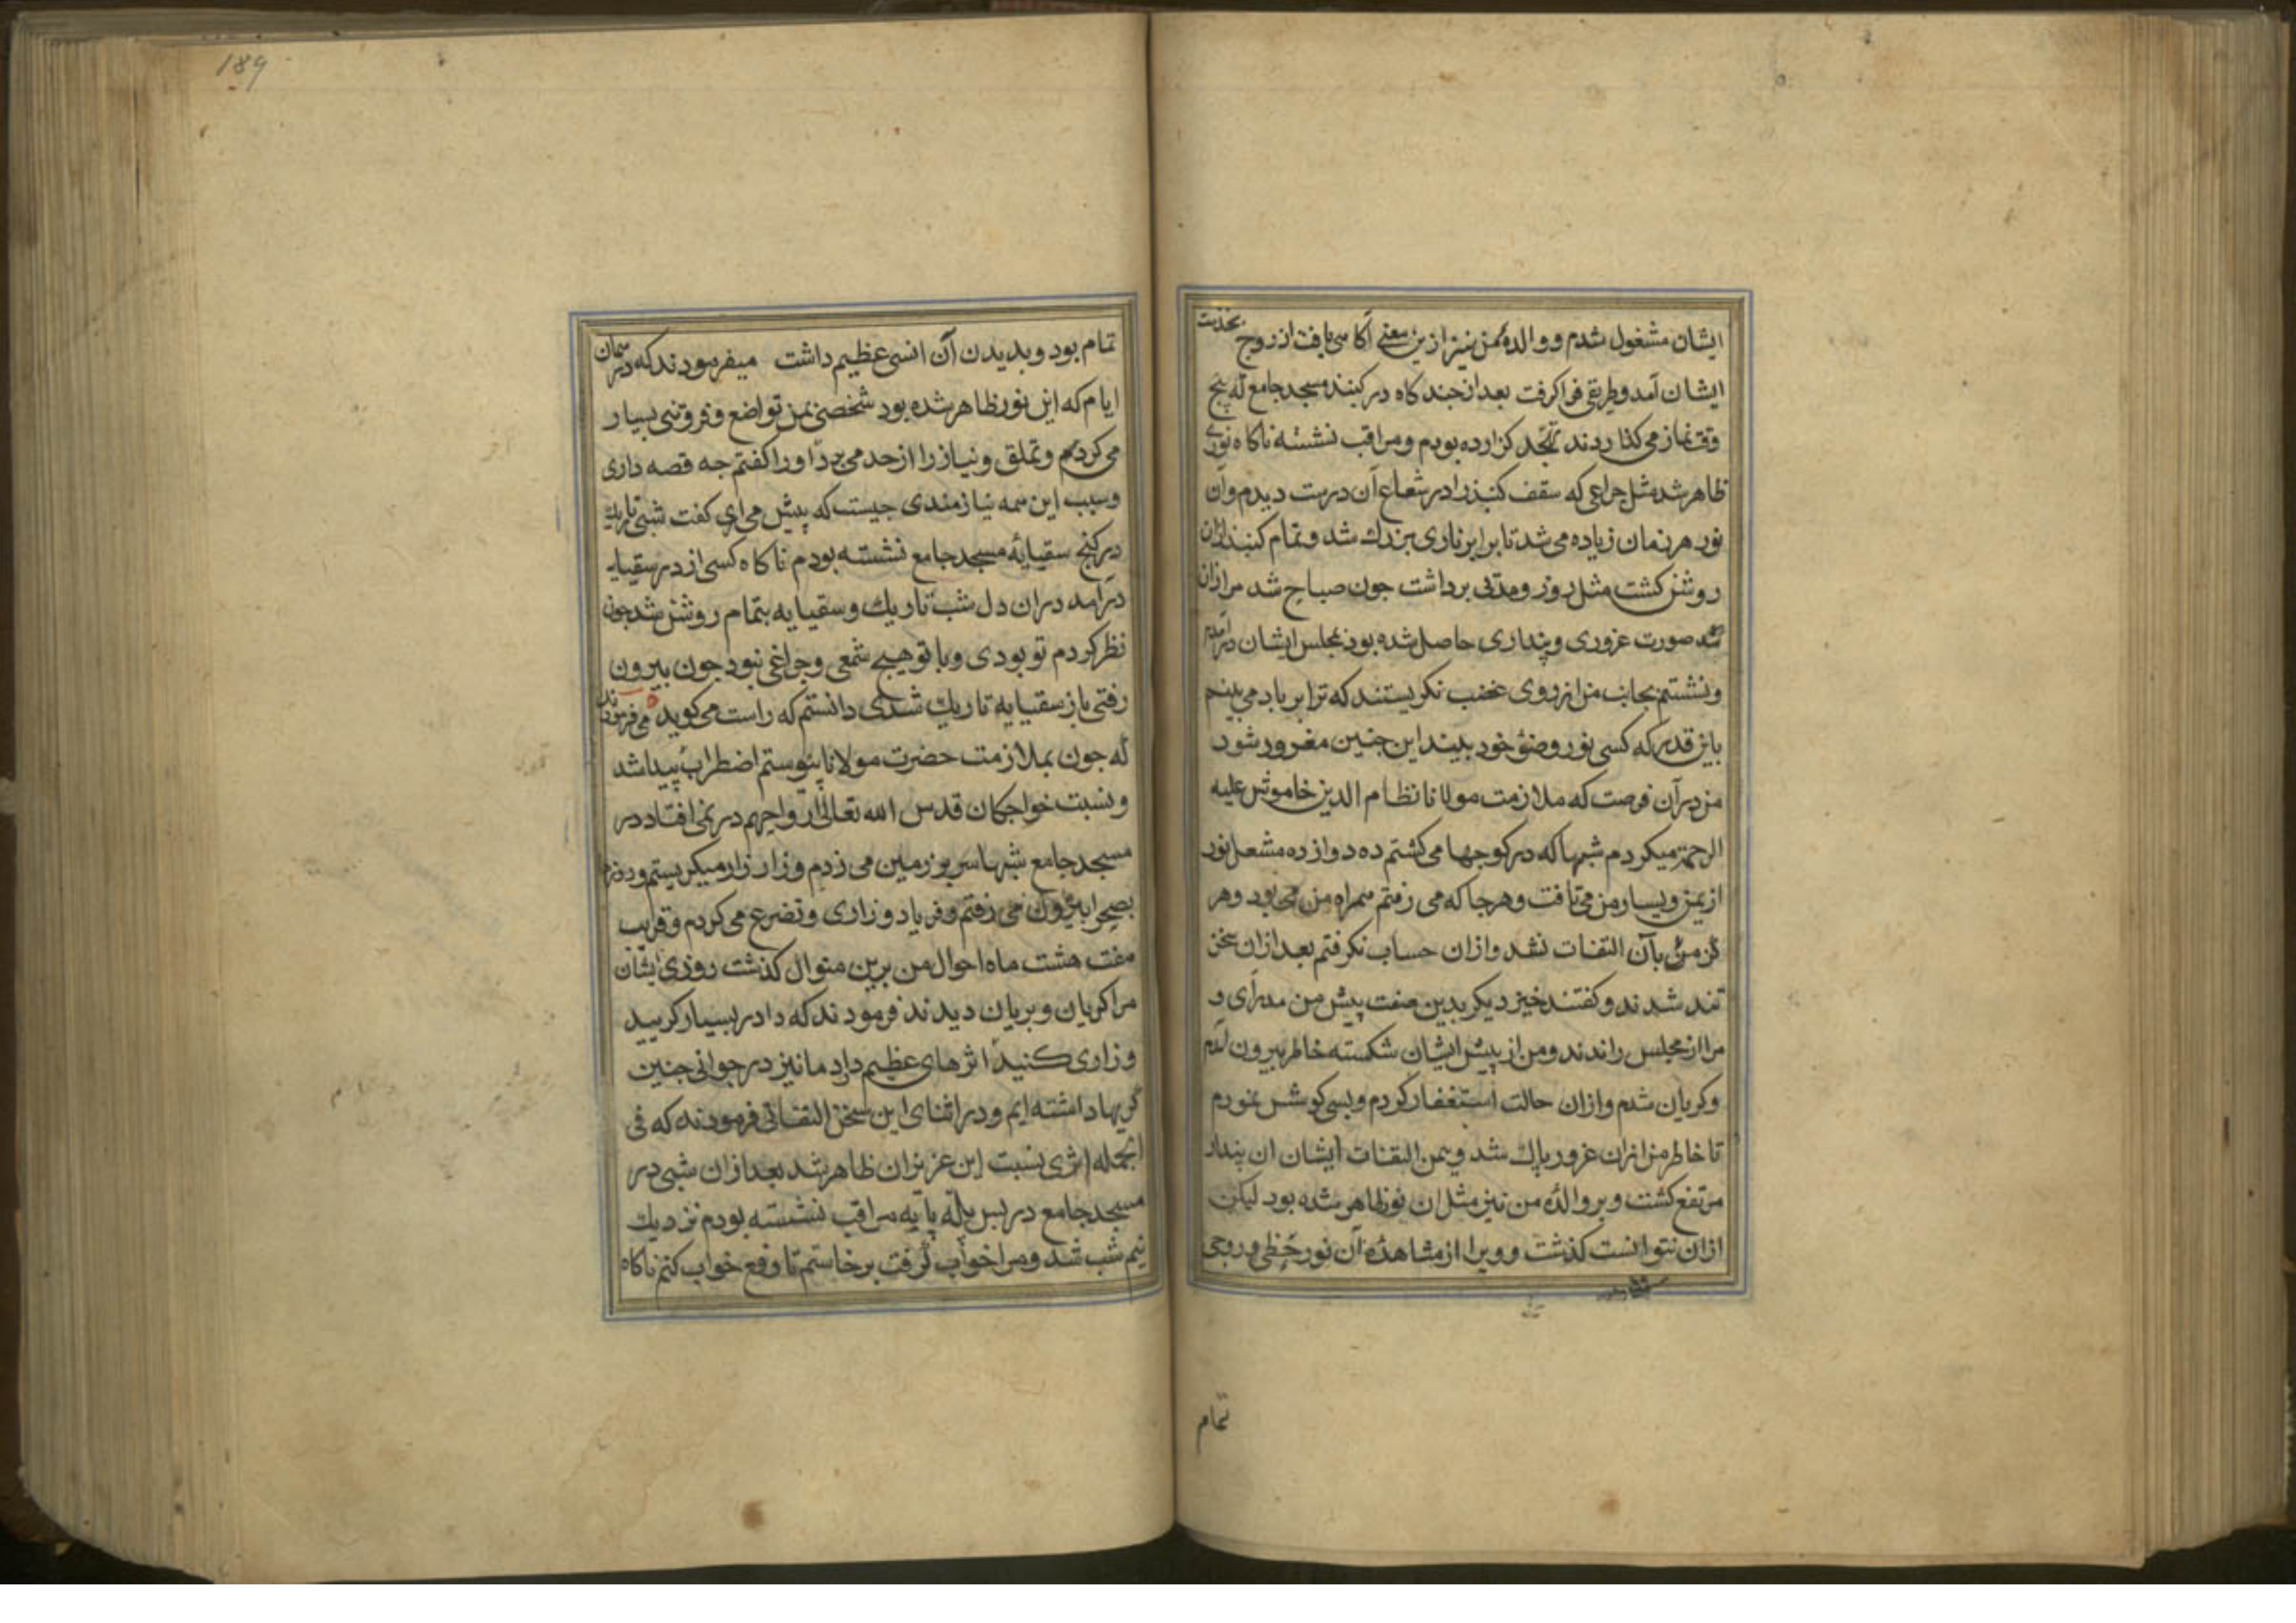 ایشان مشغول شدم و والدهٔ من نیز ازین معنی آگاهی یافت از روج بخدمت
ایشان آمد و طریقی فرا کرفت بعد از جند کاه در کنبند مسجد جامع که پنج
وقت نماز می کذاردند تهجد کزارده بودم و مراقب نشسته ناکاه نوری
ظاهر شد مثل جراغی که سقف کنبذ را در شعاع آن درست دیدم و آن
نور هر زمان زیاده می شد تا برابر ناری بزرك شد و تمام کنبذ ازان
روشن کشت مثل روز و مدتی برداشت جون صباح شد مرا ازان
صورت غروری و پنداری حاصل شده بود بمجلس ایشان درآمدم
و نشستم بجانب من از روی غضب نکریستند که ترا پر باد می بینم
باین قدر که کسی نور وضوء خود بیند این جنین مغرور شود
من در آن فرصت که ملازمت مولانا نظام الدین خاموش علیه
الرحمة میکردم شبها که در کوجها می کشتم ده دوازده مشعل نور
از یمین و یسار من می تافت و هرجا که می رفتم همراه من می بود و هر
کز من بآن التفات نشد و ازان حساب نکرفتم بعد ازان سخن
تند شدند و کفتند خیز دیکر بدین صفت پیش من مدرآی و
مرا از مجلس راندند و من از پیش ایشان شکسته خاطر بیرون آمدم
و کریان شدم و ازان حالت استغفار کردم و بسی کوشش نمودم
تا خاطر من ازان غرور پاك شد و بیمن التفات ایشان ان پندار
مرتفع کشت و بر والدهٔ من نیز مثل ان نور ظاهر شده بود لیکن
ازان نتوانست کذشت و ویرا از مشاهدهٔ آن نور حظی و روحی
تمام
189
تمام بود و بدیدن آن انسی عظیم داشت میفرمودند که در همان
ایام که این نور ظاهر شده بود شخصی بمن تواضع و فروتنی بسیار
می کرد و تملق و نیاز را از حد می برد او را کفتم جه قصه داری
و سبب این همه نیازمندی جیست که پیش می اری کفت شبی تاریك
در کنج سقیایهٔ مسجد جامع نشسته بودم ناکاه کسی از در سقیایه
درآمد دران دل شب تاریك و سقیایه بتمام روشن شد جون
نظر کردم تو بودی و با تو هیچ شمعی و جراغی نبود جون بیرون
رفتی باز سقیایه تاریك شد دانستم که راست می کوید می فرمودند
که جون بملازمت حضرت مولانا پیوستم اضطراب پیدا شد
و نسبت خواجکان قدس الله تعالی ارواحهم در نمی افتاد در
مسجد جامع شبها سر بر زمین می زدم و زار زار میکریستم و روزها
بصحرا بیرون می رفتم و فریاد و زاری و تضرع می کردم و قریب
هفت هشت ماه احوال من برین منوال کذشت روزی ایشان
مرا کریان و بریان دیدند فرمودند که دادر بسیار کریید
و زاری کنید اثرهای عظیم دارد ما نیز در جوانی جنین
کریها داشته ایم و در اثنای این سخن التفاتی فرمودند که فی
الجمله اثری نسبت این عزیزان ظاهر شد بعد ازان شبی در
مسجد جامع در پس پایه مراقب نشسته بودم نزدیك
نیم شب شد و مرا خواب کرفت برخاستم تا دفع خواب کنم ناکاه